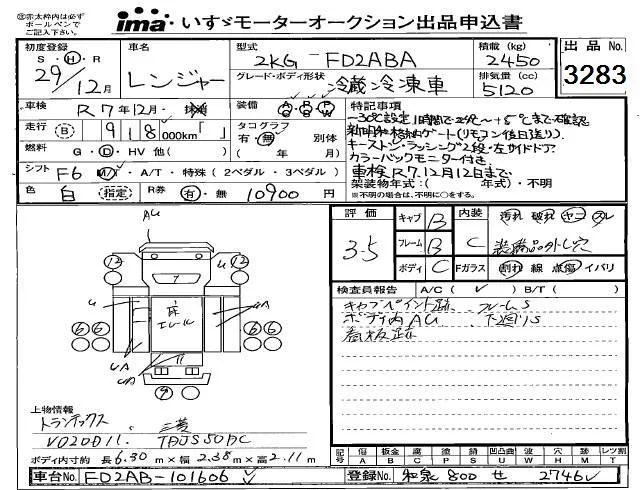 ㊟赤太枠内は必ず
ボールペンで
ご記入下さい。
ima いすゞモーターオークション出品申込書
初度登録 車名 型式 積載 (kg) 出品 No.
S・H・R 29/12月 レンジャー 2KG-FD2ABA 2450 3283
グレード・ボディ形状 冷蔵冷凍車 排気量 (cc) 5120
車検 R7年12月・抹消 装備 AC PS PW 特記事項
走行 B 918000km「 」 タコグラフ 有・無 別体 ( 年 月)
-30℃設定 1時間で2分~+5℃まで確認
格納ゲート(リモコン後日送り).
キーストン・ラッシング2段・左サイドドア.
カラーバックモニター付き
燃料 G・D・HV 他( )
シフト F6 M/T・A/T・特殊(2ペダル・3ペダル) 車検R7.12月12日まで.
架装物年式:( 年式)・不明
色 白 指定 R券 有・無 10900円 ※不明の場合は、不明に○をする。
評価 3.5 キャブ B 内装 C 汚れ 破れ ヤニ スレ
フレーム B 装飾品外し穴
ボディ C Fガラス 割れ 線 点傷 イバリ
検査員報告 A/C( ✓ ) B/T( )
キャブペイント跡 フレームS
ボディ内AU 下廻りS
看板跡
AU
12 U 12
7
U 床エレル A
6 6 6 6
UA
UA
9
上物情報
トランテックス 三菱
V020D11. TDJS50BC
ボディ内寸約 長6.30m×幅2.38m×高2.11m
記号 傷A 板金B 腐C 塗P 錆S 凹凸曲U 波W 穴H 跡M レツ割T
車台No. FD2AB-101606 登録No. 和泉 800 せ 2746